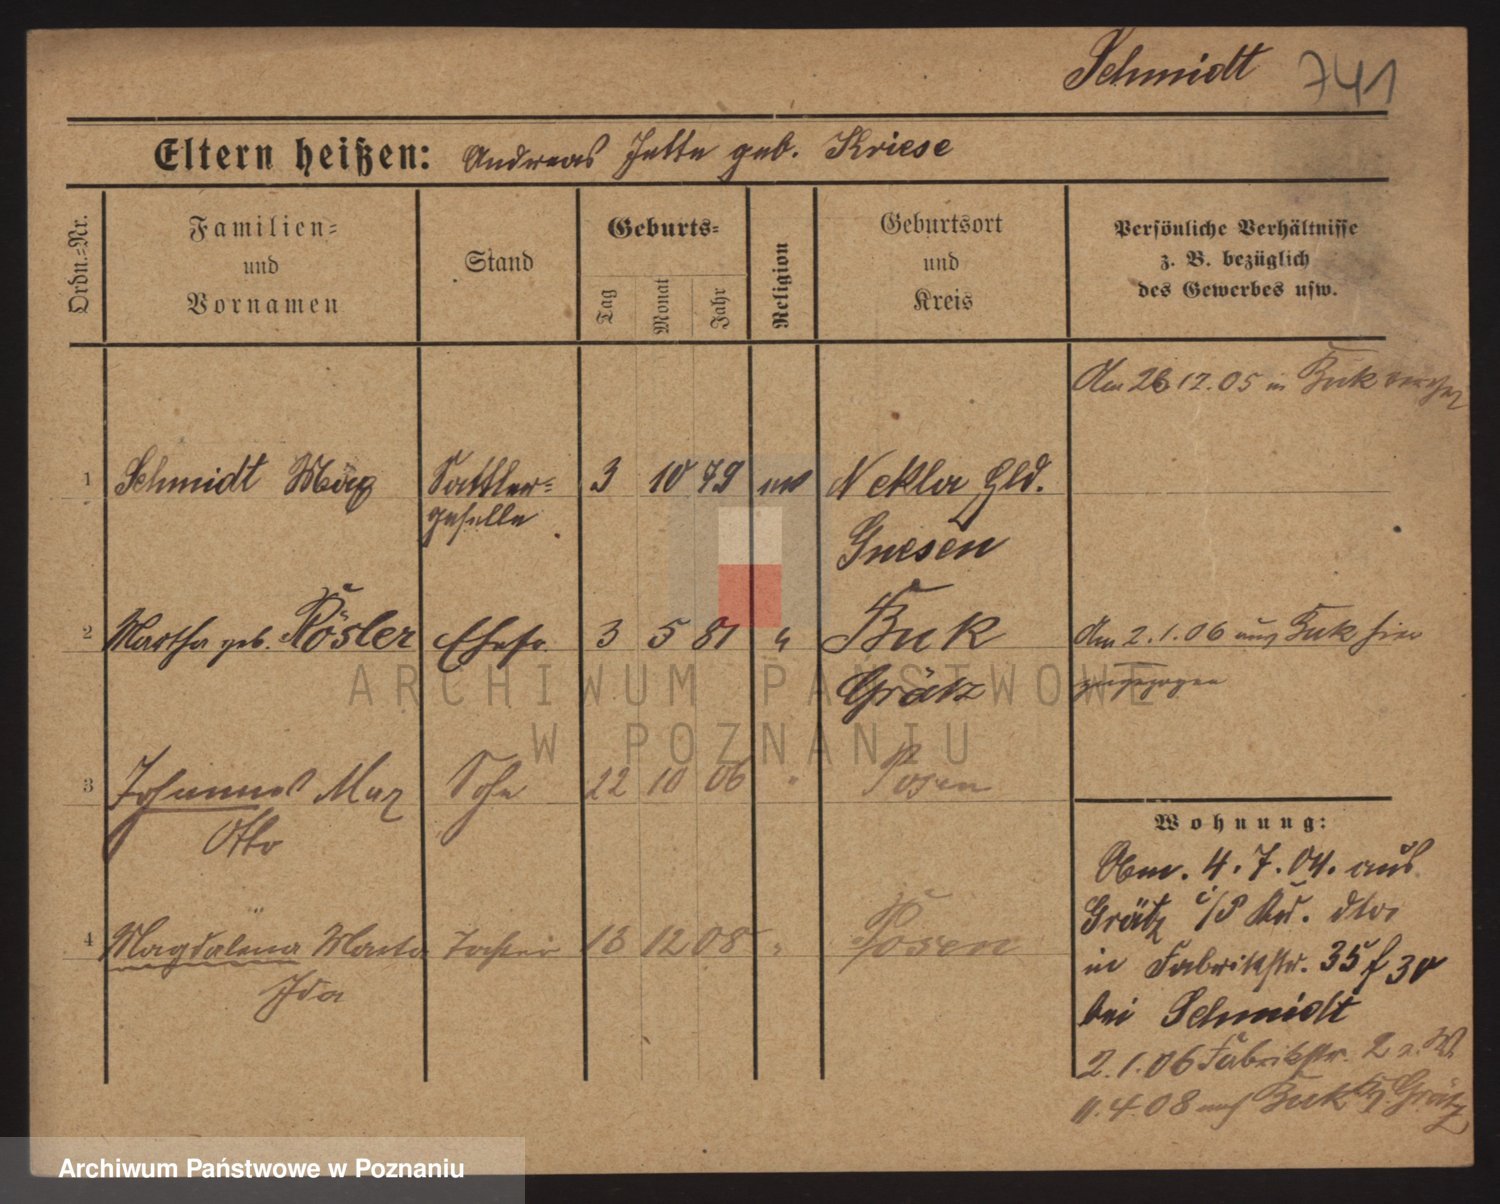 Schmidt 741
Eltern heißen: Andreas Jette geb. Kriese
Ordn.-Nr.
Familien-
und
Vornamen
Stand
Geburts-
Tag
Monat
Jahr
Religion
Geburtsort
und
Kreis
Persönliche Verhältnisse
z. B. bezüglich
des Gewerbes usw.
Am 26 12.05 in Buk
1 Schmidt Max Sattler- 3 10 79 ev Nekla Hld.
geselle
Gnesen
2 Martha geb. Rösler Ehefr. 3 5 81 " Buk
Grätz
Am 2.1.06 aus Buk hier
zugezogen
3 Johannes Max Sohn 22 10 06 " Posen
Otto
4 Magdalena Marta Tochter 13 12 08 " Posen
Ida
Wohnung:
Abm. 4.7.04. aus
Grätz i/P
in Fabrikstr. 35 f 30
bei Schmidt
2.1.06 Fabrikstr. 2
11.4.08 auch Buk Grätz
ARCHIWUM PAŃSTWOWE
W POZNANIU
Archiwum Państwowe w Poznaniu